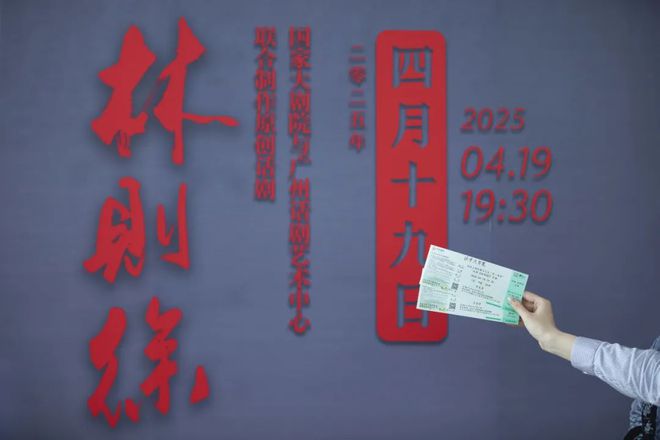 林则徐
国家大剧院与广州话剧艺术中心
联合制作原创话剧
二零二五年
四月十九日
2025
04.19
19:30